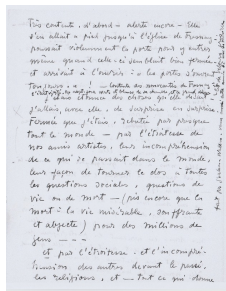 Très contente, d'abord - alerte encore - Elle
s'en allait à pied jusqu'à l'église de
poussait violemment la porte pour y entrer
même quand celle-ci semblait bien fermée
et arrivait à l'ouvrir - « les portes s'ouvrent
toujours » -
j'allais avec elle, de surprise en surprise.
Fermée que j'étais, rebutée par presque
tout le monde - par l'étroitesse de
nos amis artistes, leur incompréhension
de ce qui se passait dans le monde,
leur façon de tourner le dos à toutes
les questions sociales, questions de
vie ou de mort - (pis encore que la
mort : la vie misérable, souffrante
et abjecte) pour des millions de
gens - - -
et par l'étroitesse et l'incompré-
hension des autres devant le passé,
les religions, et - tout ce qui donne